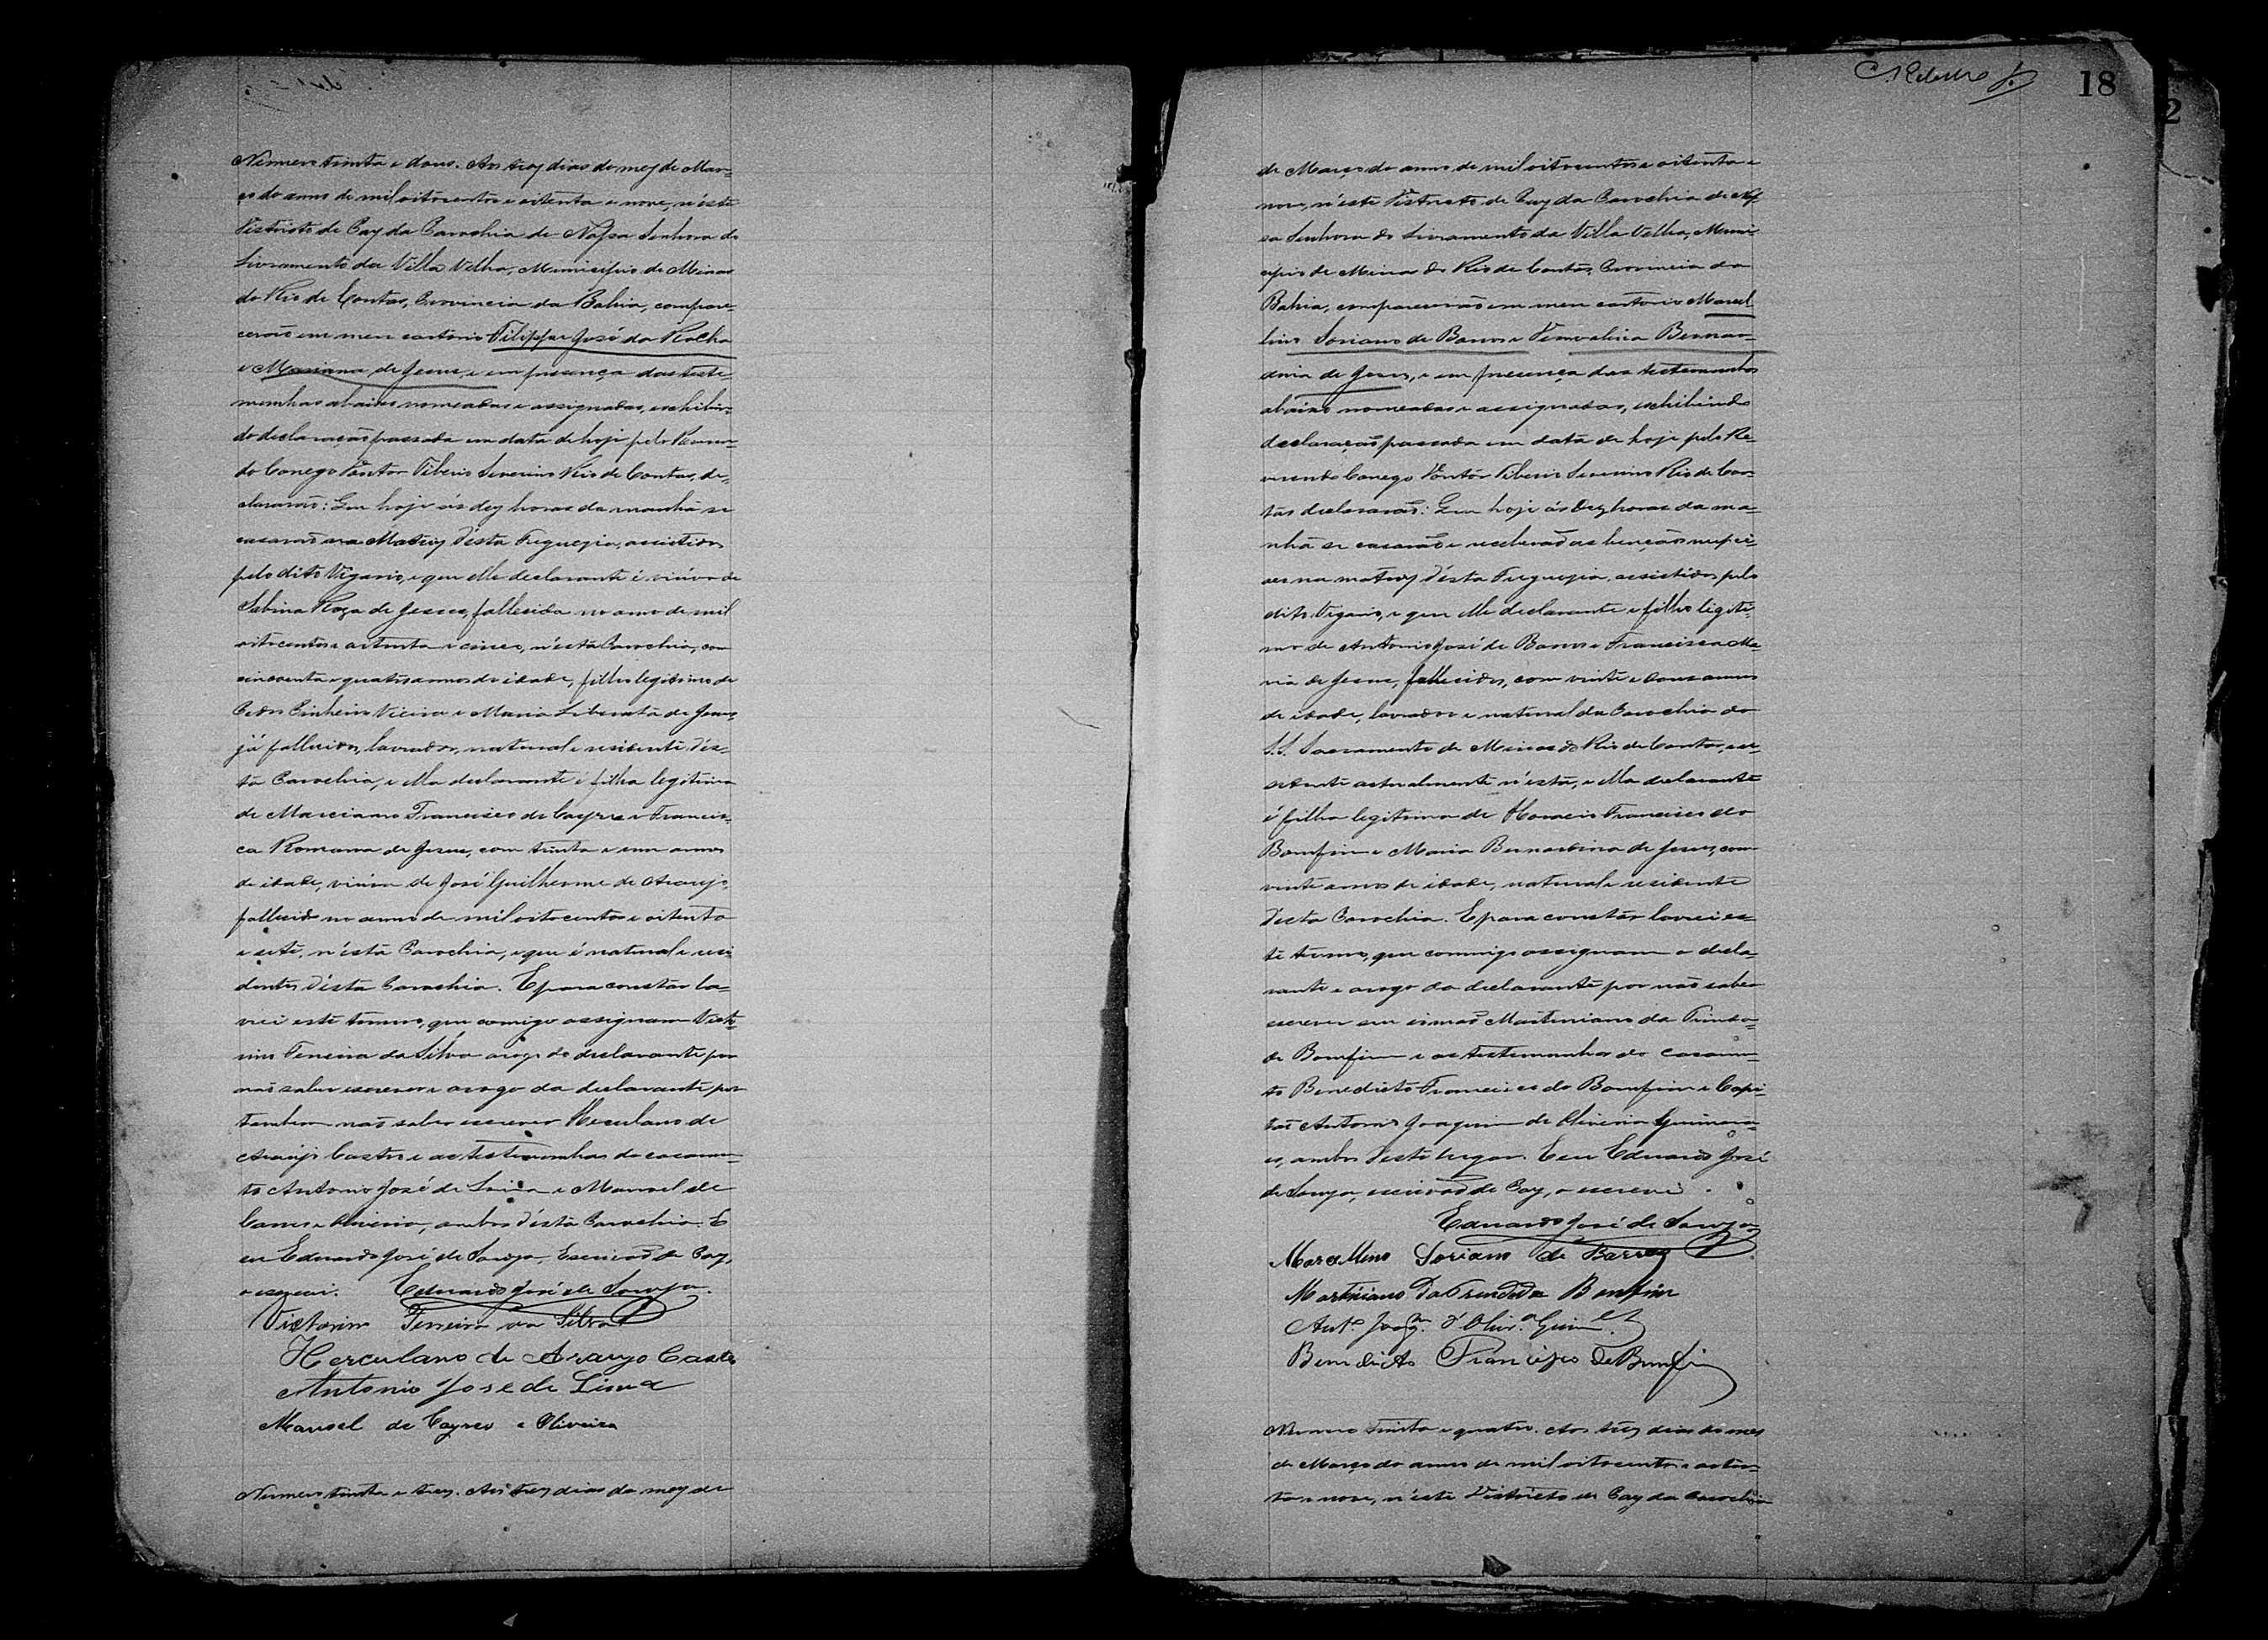 Numero trinta e dous. Aos trez dias do mez de Mar-
ço do anno de mil oitocentos e oitenta e nove, n'éste
Districto de Paz da Parochia de Nossa Senhora do
Livramento da Villa Velha, Municipio de Minas
do Rio de Contas, Provincia da Bahia, compare-
cerão em meu cartorio Filippe José da Rocha
e Marianna de Jesus, e em presença das teste-
munhas abaixo nomeadas e assignadas, exhibin-
do declaração passada em data de hoje pelo Reveren-
do Conego Doutor Tiberio Severino Rio de Contas, de-
clararão: Que hoje ás dez horas da manhã se
casarão na Matriz d'ésta Freguezia, assistidos
pelo dito Vigario, e que elle declarante é viúvo de
Sabina Roza de Jesus, fallecida no anno de mil
oitocentos e oitenta e cinco, n'ésta Parochia, com
cincoenta e quatro annos de idade, filho legitimo de
Pedro Pinheiro Vieira e Maria Liberata de Jesus,
já fallecidos, lavrador, natural e residente d'és-
ta Parochia, e ella declarante é filha legitima
de Marciano Francisco de Cayres e Francis-
ca Romana de Jesus, com trinta e um annos
de idade, viúva de José Guilherme de Araujo,
fallecido no anno de mil oitocentos e oitenta
e sete, n'ésta Parochia, e que é natural e resi-
dente d'ésta Parochia. E para constar la-
vrei este termo, que comigo assignam Victo-
rino Ferreira da Silva a rogo do declarante por
não saber escrever e a rogo da declarante por
tambem não saber escrever Herculano de
Araujo Castro e as testemunhas do casamen-
to Antonio José de Lima e Manoel de
Cayres e Oliveira, ambos d'ésta Parochia. E
eu Eduardo José de Souza, Escrivão de Paz,
o escrevi. Eduardo José de Souza.
Victorino Ferreira da Silva
Herculano de Araujo Castro
Antonio José de Lima
Manoel de Cayres e Oliveira
Numero trinta e trez. Aos trez dias do mez de
18
2
de Março do anno de mil oitocentos e oitenta e
nove, n'éste Districto de Paz da Parochia de Nos-
sa Senhora do Livramento da Villa Velha, Muni-
cipio de Minas do Rio de Contas, Provincia da
Bahia, comparecerão em meu cartorio Marcel-
lino Soriano de Barros e Bernar-
dina de Jesus, e em presença das testemunhas
abaixo nomeadas e assignadas, exhibindo
declaração passada em data de hoje pelo Re-
verendo Conego Doutor Tiberio Severino Rio de Con-
tas declararão: Que hoje ás dez horas da ma-
nhã se casarão e receberão as bençãos nupci-
aes na matriz d'ésta Freguezia, assistidos pelo
dito Vigario, e que elle declarante é filho legiti-
mo de Antonio José de Barros e Francisca Ma-
ria de Jesus, fallecidos, com vinte e dous annos
de idade, lavrador e natural da Parochia do
S.S. Sacramento de Minas do Rio de Contas, re-
sidente actualmente n'ésta, e ella declarante
é filha legitima de Horacio Francisco do
Bomfim e Maria Bernardina de Jesus, com
vinte annos de idade, natural e residente
d'esta Parochia. E para constar lavrei es-
te termo, que commigo assignam o decla-
rante e a rogo da declarante por não saber
escrever seu irmão Martiniano da Trinda-
de Bomfim e as testemunhas do casamen-
to Benedicto Francisco do Bomfim e Capi-
tão Antonio Joaquim de Oliveira Guimarã-
es, ambos d'este lugar. E eu Eduardo José
de Souza, escrivão de Paz, o escrevi.
Eduardo José de Souza
Marcellino Soriano de Barros
Martiniano da Trindade Bomfim
Ant.º Joaq.m d'Oliv.ª Guim.es
Benedicto Francisco do Bomfim
Numero trinta e quatro. Aos trez dias do mez
de Março do anno de mil oitocentos e oiten-
ta e nove, n'éste Districto de Paz da Parochia